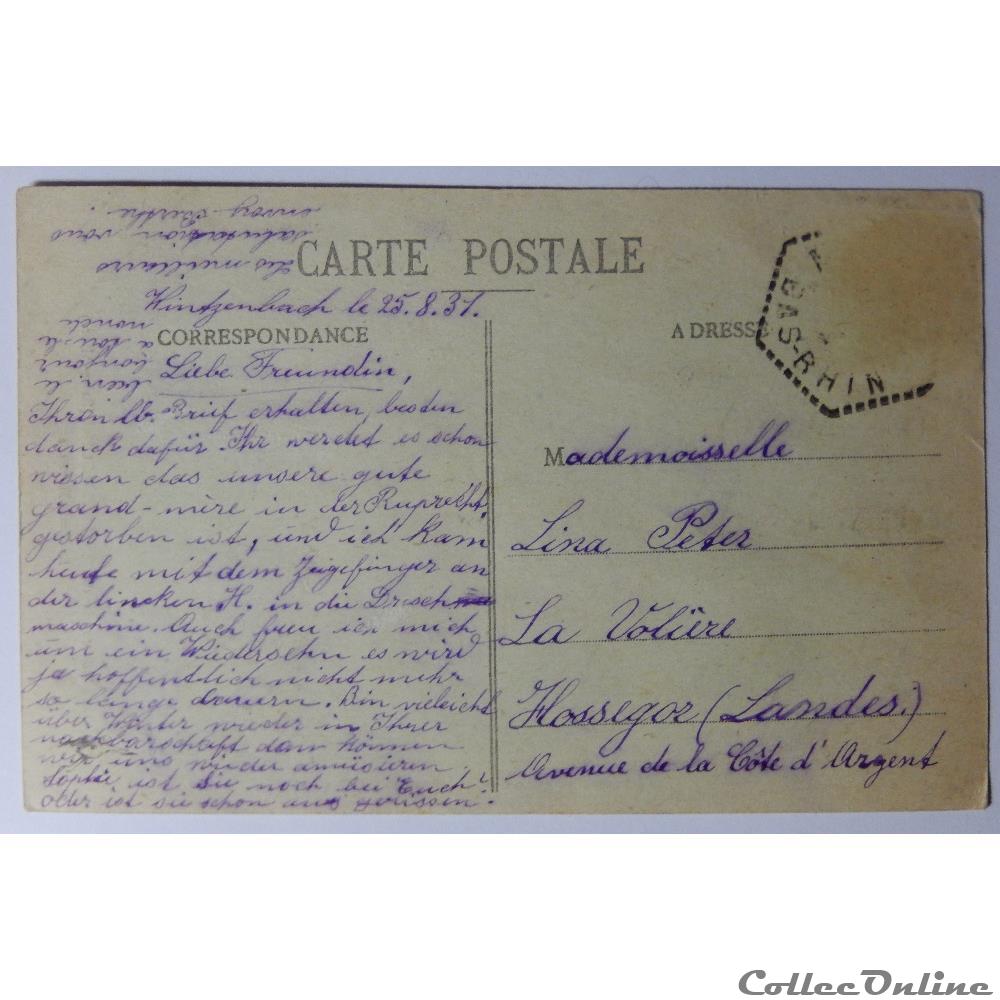 CARTE POSTALE
Wintzenbach le 25.8.31.
CORRESPONDANCE
Liebe Freundin,
Ihren lb. Brief erhalten, besten
danck dafür. Ihr werdet es schon
wiesen das unsere gute
grand-mère in der Ruprecht.
gestorben ist, und ich kam
heute mit dem Zeigefinger an
der lincken H. in die Dresch
maschine. Auch freu ich mich
um ein Wiedersehn es wird
ja hoffentlich nicht mehr
so lange dauern. Bin vieleicht
über Winter wieder in Ihrer
nachbarschaft dan können
wir uns wieder amüsieren.
Sophie ist sie noch bei Euch?
oder ist sie schon aus gerissen.
bien le
bonjour
a tous le
monde
Les meilleurs
salutation vous
envoy Berthe.
ADRESSE
BAS-RHIN
Mademoisselle
Lina Peter
La Volière
Hossegor (Landes.)
Avenue de la Côte d'Argent
CollecOnline